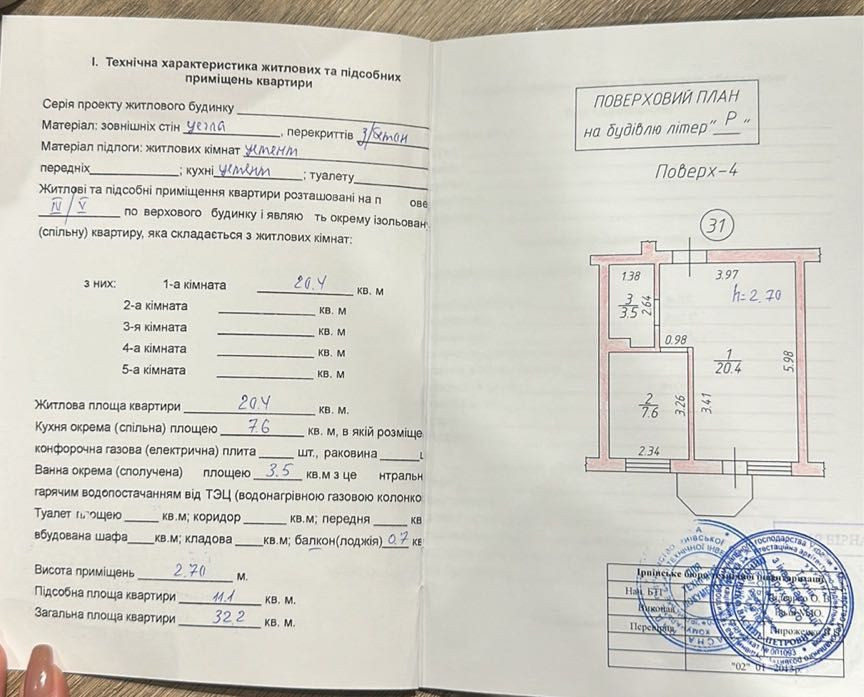 I. Технічна характеристика житлових та підсобних
приміщень квартири
Серія проекту житлового будинку
Матеріал: зовнішніх стін уегла, перекриттів з/бетон
Матеріал підлоги: житлових кімнат цемент
передніх ; кухні цемент ; туалету
Житлові та підсобні приміщення квартири розташовані на п ове
IV/V по верхового будинку і являю ть окрему ізольован
(спільну) квартиру, яка складається з житлових кімнат:
з них: 1-а кімната 20.4 кв. м
2-а кімната кв. м
3-я кімната кв. м
4-а кімната кв. м
5-а кімната кв. м
Житлова площа квартири 20.4 кв. м.
Кухня окрема (спільна) площею 7.6 кв. м, в якій розміще
конфорочна газова (електрична) плита шт., раковина
Ванна окрема (сполучена) площею 3.5 кв.м з це нтральн
гарячим водопостачанням від ТЭЦ (водонагрівною газовою колонко
Туалет площею кв.м; коридор кв.м; передня кв
вбудована шафа кв.м; кладова кв.м; балкон(лоджія) 0.7 кв
Висота приміщень 2.70 м.
Підсобна площа квартири 11.1 кв. м.
Загальна площа квартири 32.2 кв. м.
ПОВЕРХОВИЙ ПЛАН
на будівлю літер " Р "
Поверх-4
31
1.38
3.97
h=2.70
3
3.5
2.64
0.98
1
20.4
5.98
2
7.6
3.26
3.41
2.34
Ірпінське бюро технічної інвентаризації
Нач. БТІ
Виконав
Перевірив
"02" 01 2013р.